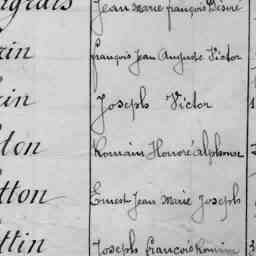 Jean Marie françois Désiré
François Jean Auguste Victor
Joseph Victor
Romain Honoré Alphonse
Ernest Jean Marie Joseph
Joseph François Romain